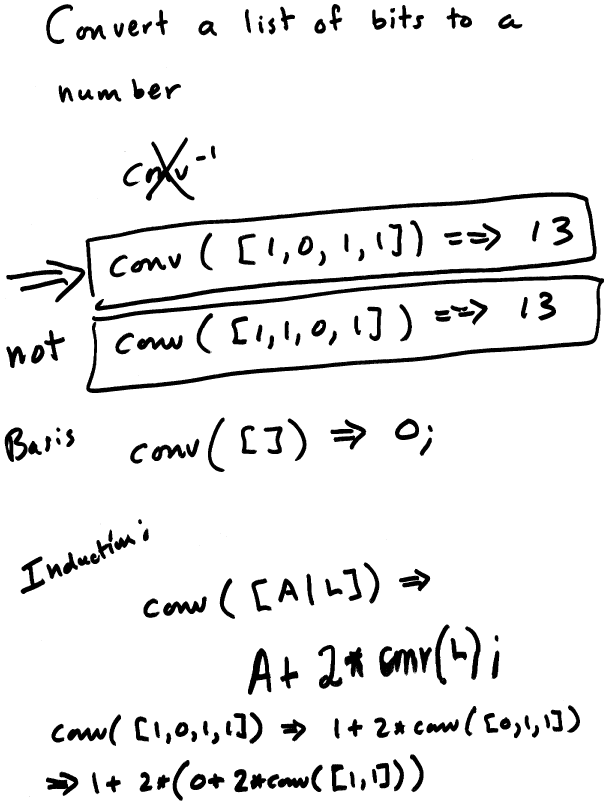 Convert a list of bits to a
number
conv⁻¹
conv ( [1,0,1,1]) ==> 13
not conv ( [1,1,0,1] ) ==> 13
Basis conv( [ ] ) => 0;
Induction:
conv ( [A|L]) =>
A + 2* conv(L) ;
conv( [1,0,1,1]) => 1 + 2 * conv ( [0,1,1])
=> 1 + 2*(0+2*conv([1,1]))